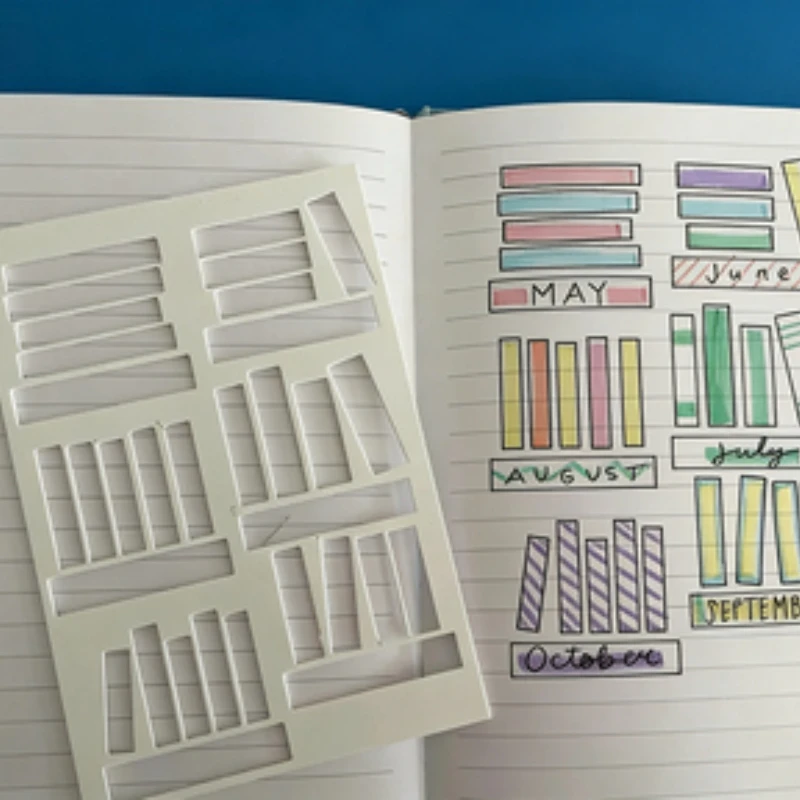 MAY
June
AUGUST
July
SEPTEMB
October